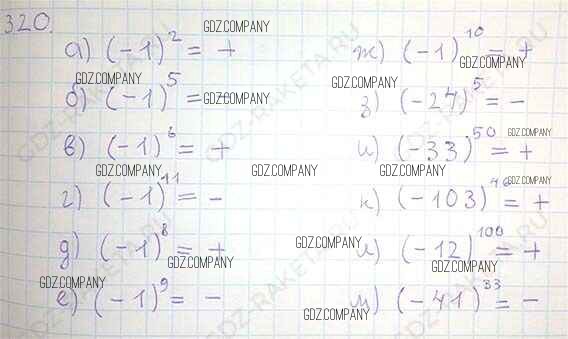 320.
а) (-1)² = +
б) (-1)⁵ = -
в) (-1)⁶ = +
г) (-1)¹¹ = -
д) (-1)⁸ = +
е) (-1)⁹ = -
ж) (-1)¹⁰ = +
з) (-24)⁵ = -
и) (-33)⁵⁰ = +
к) (-103)⁴⁶ = +
л) (-12)¹⁰⁰ = +
м) (-41)³³ = -
GDZ.COMPANY
GDZ.COMPANY
GDZ.COMPANY
GDZ.COMPANY
GDZ.COMPANY
GDZ.COMPANY
GDZ.COMPANY
GDZ.COMPANY
GDZ.COMPANY
GDZ.COMPANY
GDZ.COMPANY
GDZ.COMPANY
GDZ.COMPANY
GDZ.COMPANY
GDZ-RAKETA.RU
GDZ-RAKETA.RU
GDZ-RAKETA.RU
GDZ-RAKETA.RU